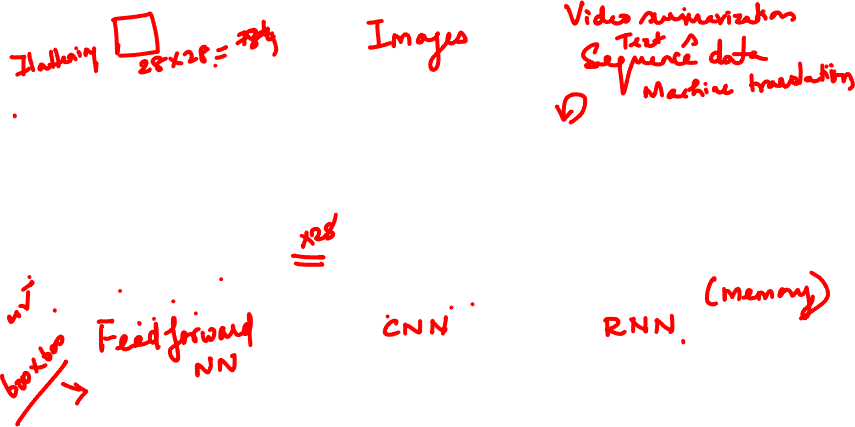 Flattening 28×28 = 784
Images
Video summarization
Text
Sequence data
Machine translation
×28
600×600
Feed forward
NN
CNN
RNN
(memory)